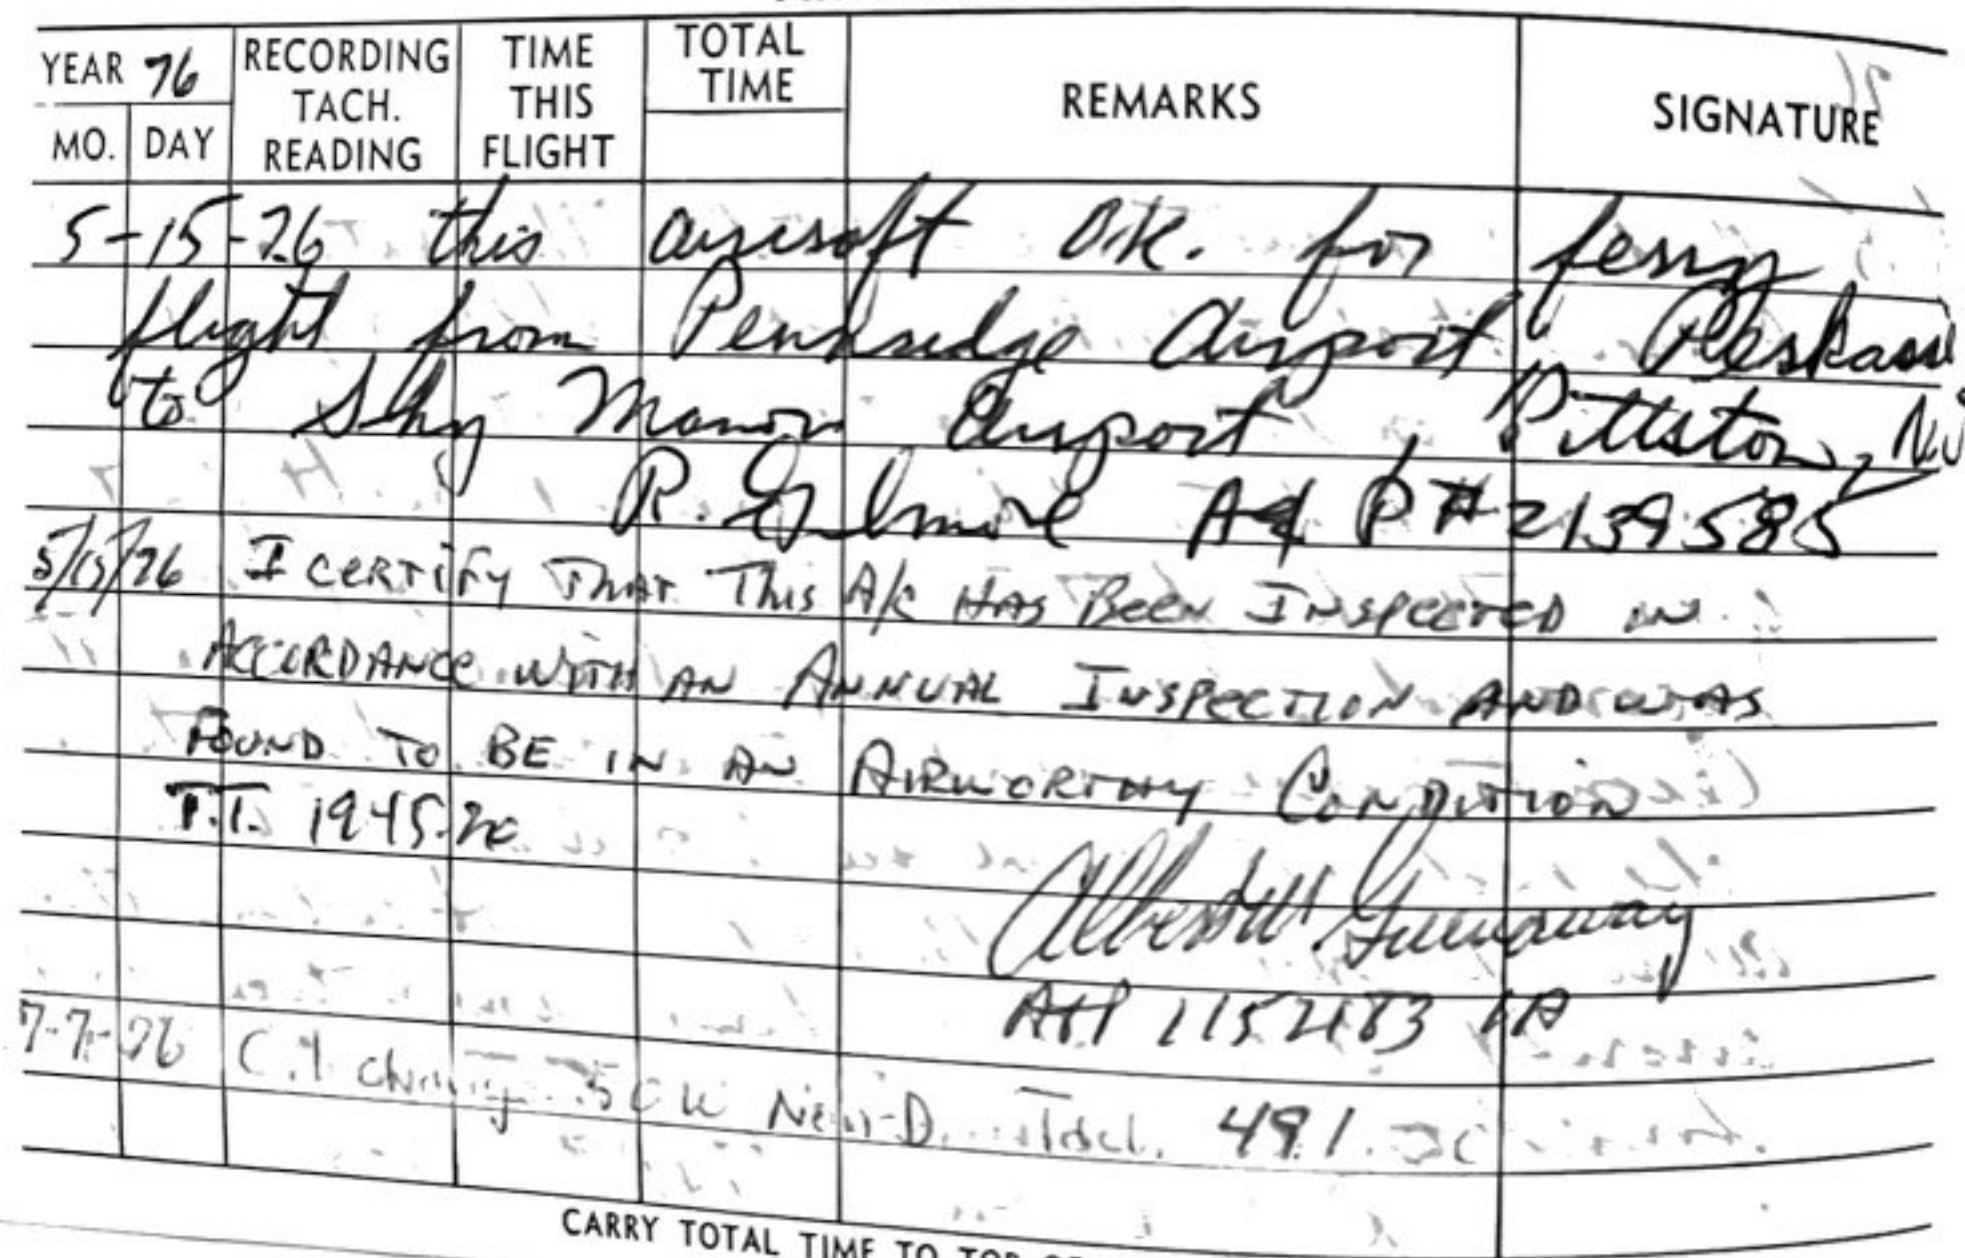 YEAR 76
MO. DAY
RECORDING TACH. READING
TIME THIS FLIGHT
TOTAL TIME
REMARKS
SIGNATURE
5-15-76 this aircraft O.K. for ferry
flight from Pennridge Airport, 
to Sky Manor Airport, Pittstown, N.J
R. Gilmore A & P # 2139585
5/15/76 I CERTIFY THAT THIS A/C HAS BEEN INSPECTED IN
ACCORDANCE WITH AN ANNUAL INSPECTION AND WAS
FOUND TO BE IN AN AIRWORTHY CONDITION
T.T. 1945.20
Albert W Greenaway
A&P 1152183 IA
7-7-76 Non-D. Tach. 491.
CARRY TOTAL TIME TO TOP